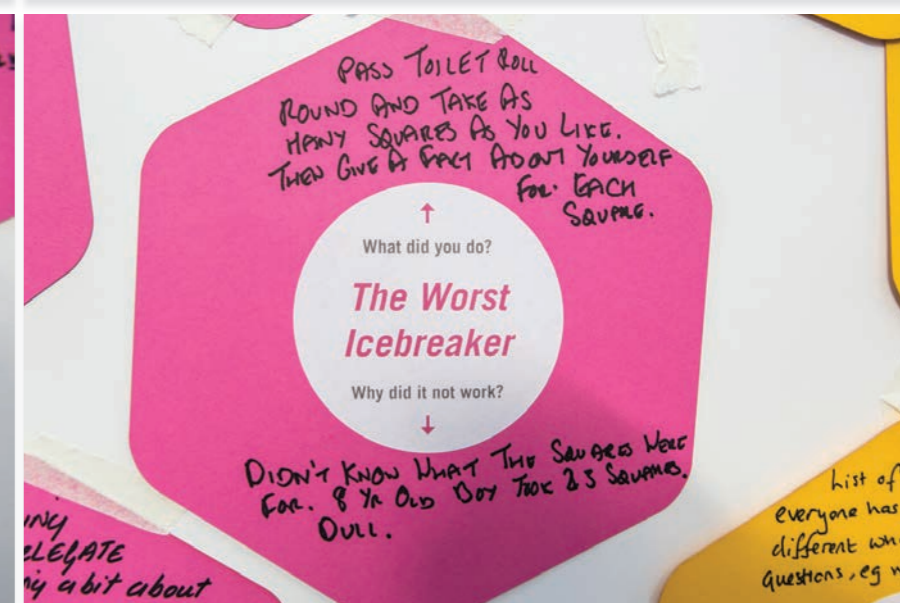 PASS TOILET ROLL
ROUND AND TAKE AS
MANY SQUARES AS YOU LIKE.
THEN GIVE A FACT ABOUT YOURSELF
FOR EACH
SQUARE.
What did you do?
The Worst
Icebreaker
Why did it not work?
DIDN'T KNOW WHAT THE SQUARES WERE
FOR. 8 YR OLD BOY TOOK 23 SQUARES.
DULL.
a bit about
List of
everyone has
different
questions, eg